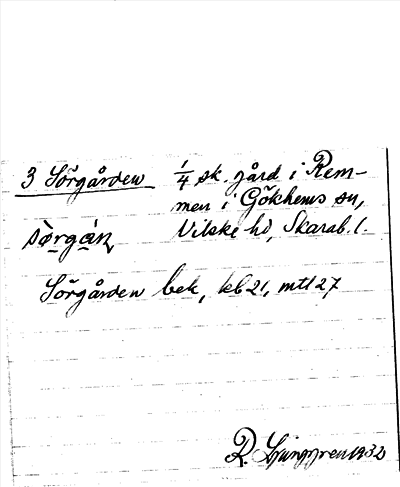 3 Sörgården 1/4 sk. gård i Rem-
men i Gökhems sn,
Vilske hd, Skarab. l.
sö̀rgán
Sörgården bek, kb 21, mtl 27
R. Ljunggren 1932